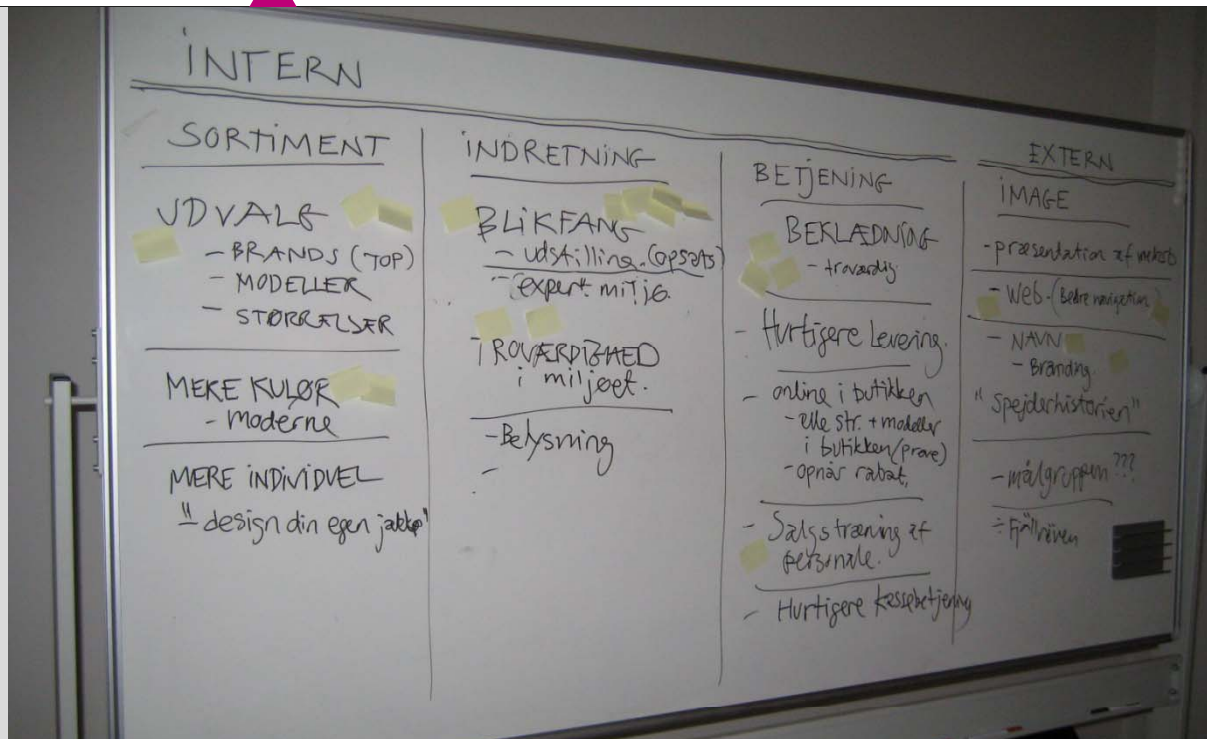 INTERN
SORTIMENT
UDVALG
- BRANDS (TOP)
- MODELLER
- STØRRELSER
MERE KULØR
- moderne
MERE INDIVIDUEL
"- design din egen jakke"
INDRETNING
BLIKFANG
- udstilling. (opsats)
- expert miljø.
TROVÆRDIGHED
i miljøet.
- Belysning
-
BETJENING
BEKLÆDNING
- troværdig
- Hurtigere Levering.
- online i butikken
- alle str. + modeller
i butikken (prøve)
- opnår rabat.
- Salgstræning af
personale.
- Hurtigere kassebetjening
EXTERN
IMAGE
- præsentation af
- Web - (Bedre navigation)
- NAVN
- Branding.
"Spejderhistorien"
- målgruppen ???
÷ Fjällräven